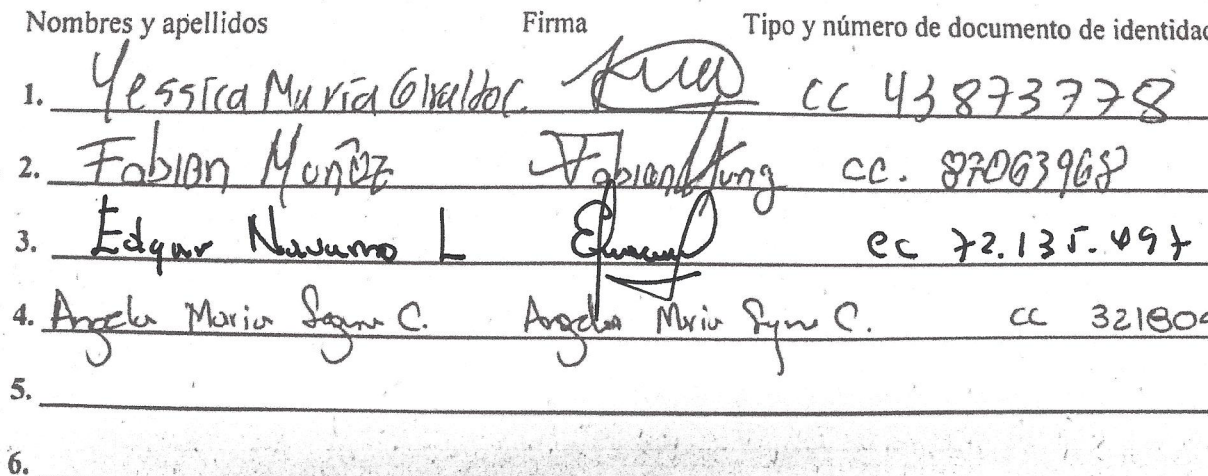 Nombres y apellidos Firma Tipo y número de documento de identidad
1. Yessica María Giraldo C. CC 43873778
2. Fabian Muñoz Fabian Mung CC. 87063968
3. Edgar Navarro L CC 72.135.497
4. Angela Maria C. Angela Maria C. CC 321804
5.
6.